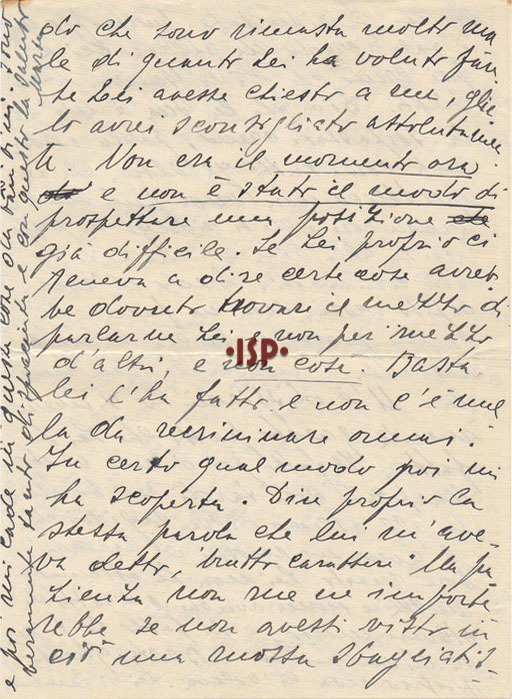 do che sono rimasta molto ma
le di quanto Lei ha voluto far.
Se Lei avesse chiesto a me, glie
lo avrei sconsigliato assolutamen
te. Non era il momento ora
e non è stato il modo di
prospettare una posizione che
già difficile. Se Lei proprio ci
teneva a dire certe cose avreb
be dovuto trovare il mezzo di
parlarne Lei e non per mezzo
d'altri, e non così. Basta,
lei l'ha fatto e non c'è nul
la da recriminare ormai.
In certo qual modo poi mi
ha scoperta. Dire proprio la
stessa parola che lui m'ave-
va detto, "brutto carattere" Ma pa
zienza non me ne importe
rebbe, se non avessi visto in
ciò una mossa sbagliatis-
e poi mi cade in queste cose da bambini. Sono
veramente tanto dispiaciuta e con questo la saluto
ISP